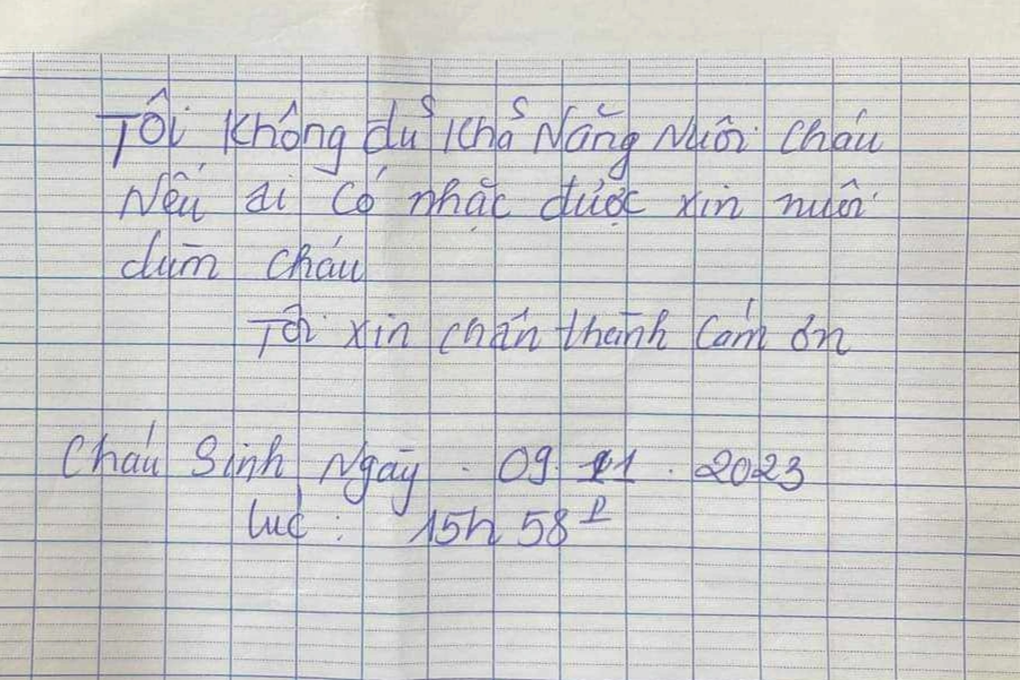 Tôi không đủ khả năng nuôi cháu
Nếu ai có nhặc được xin nuôi
dùm cháu
Tôi xin chân thành cám ơn
Cháu sinh ngày . 09 . 11 . 2023
lúc : 15h 58P